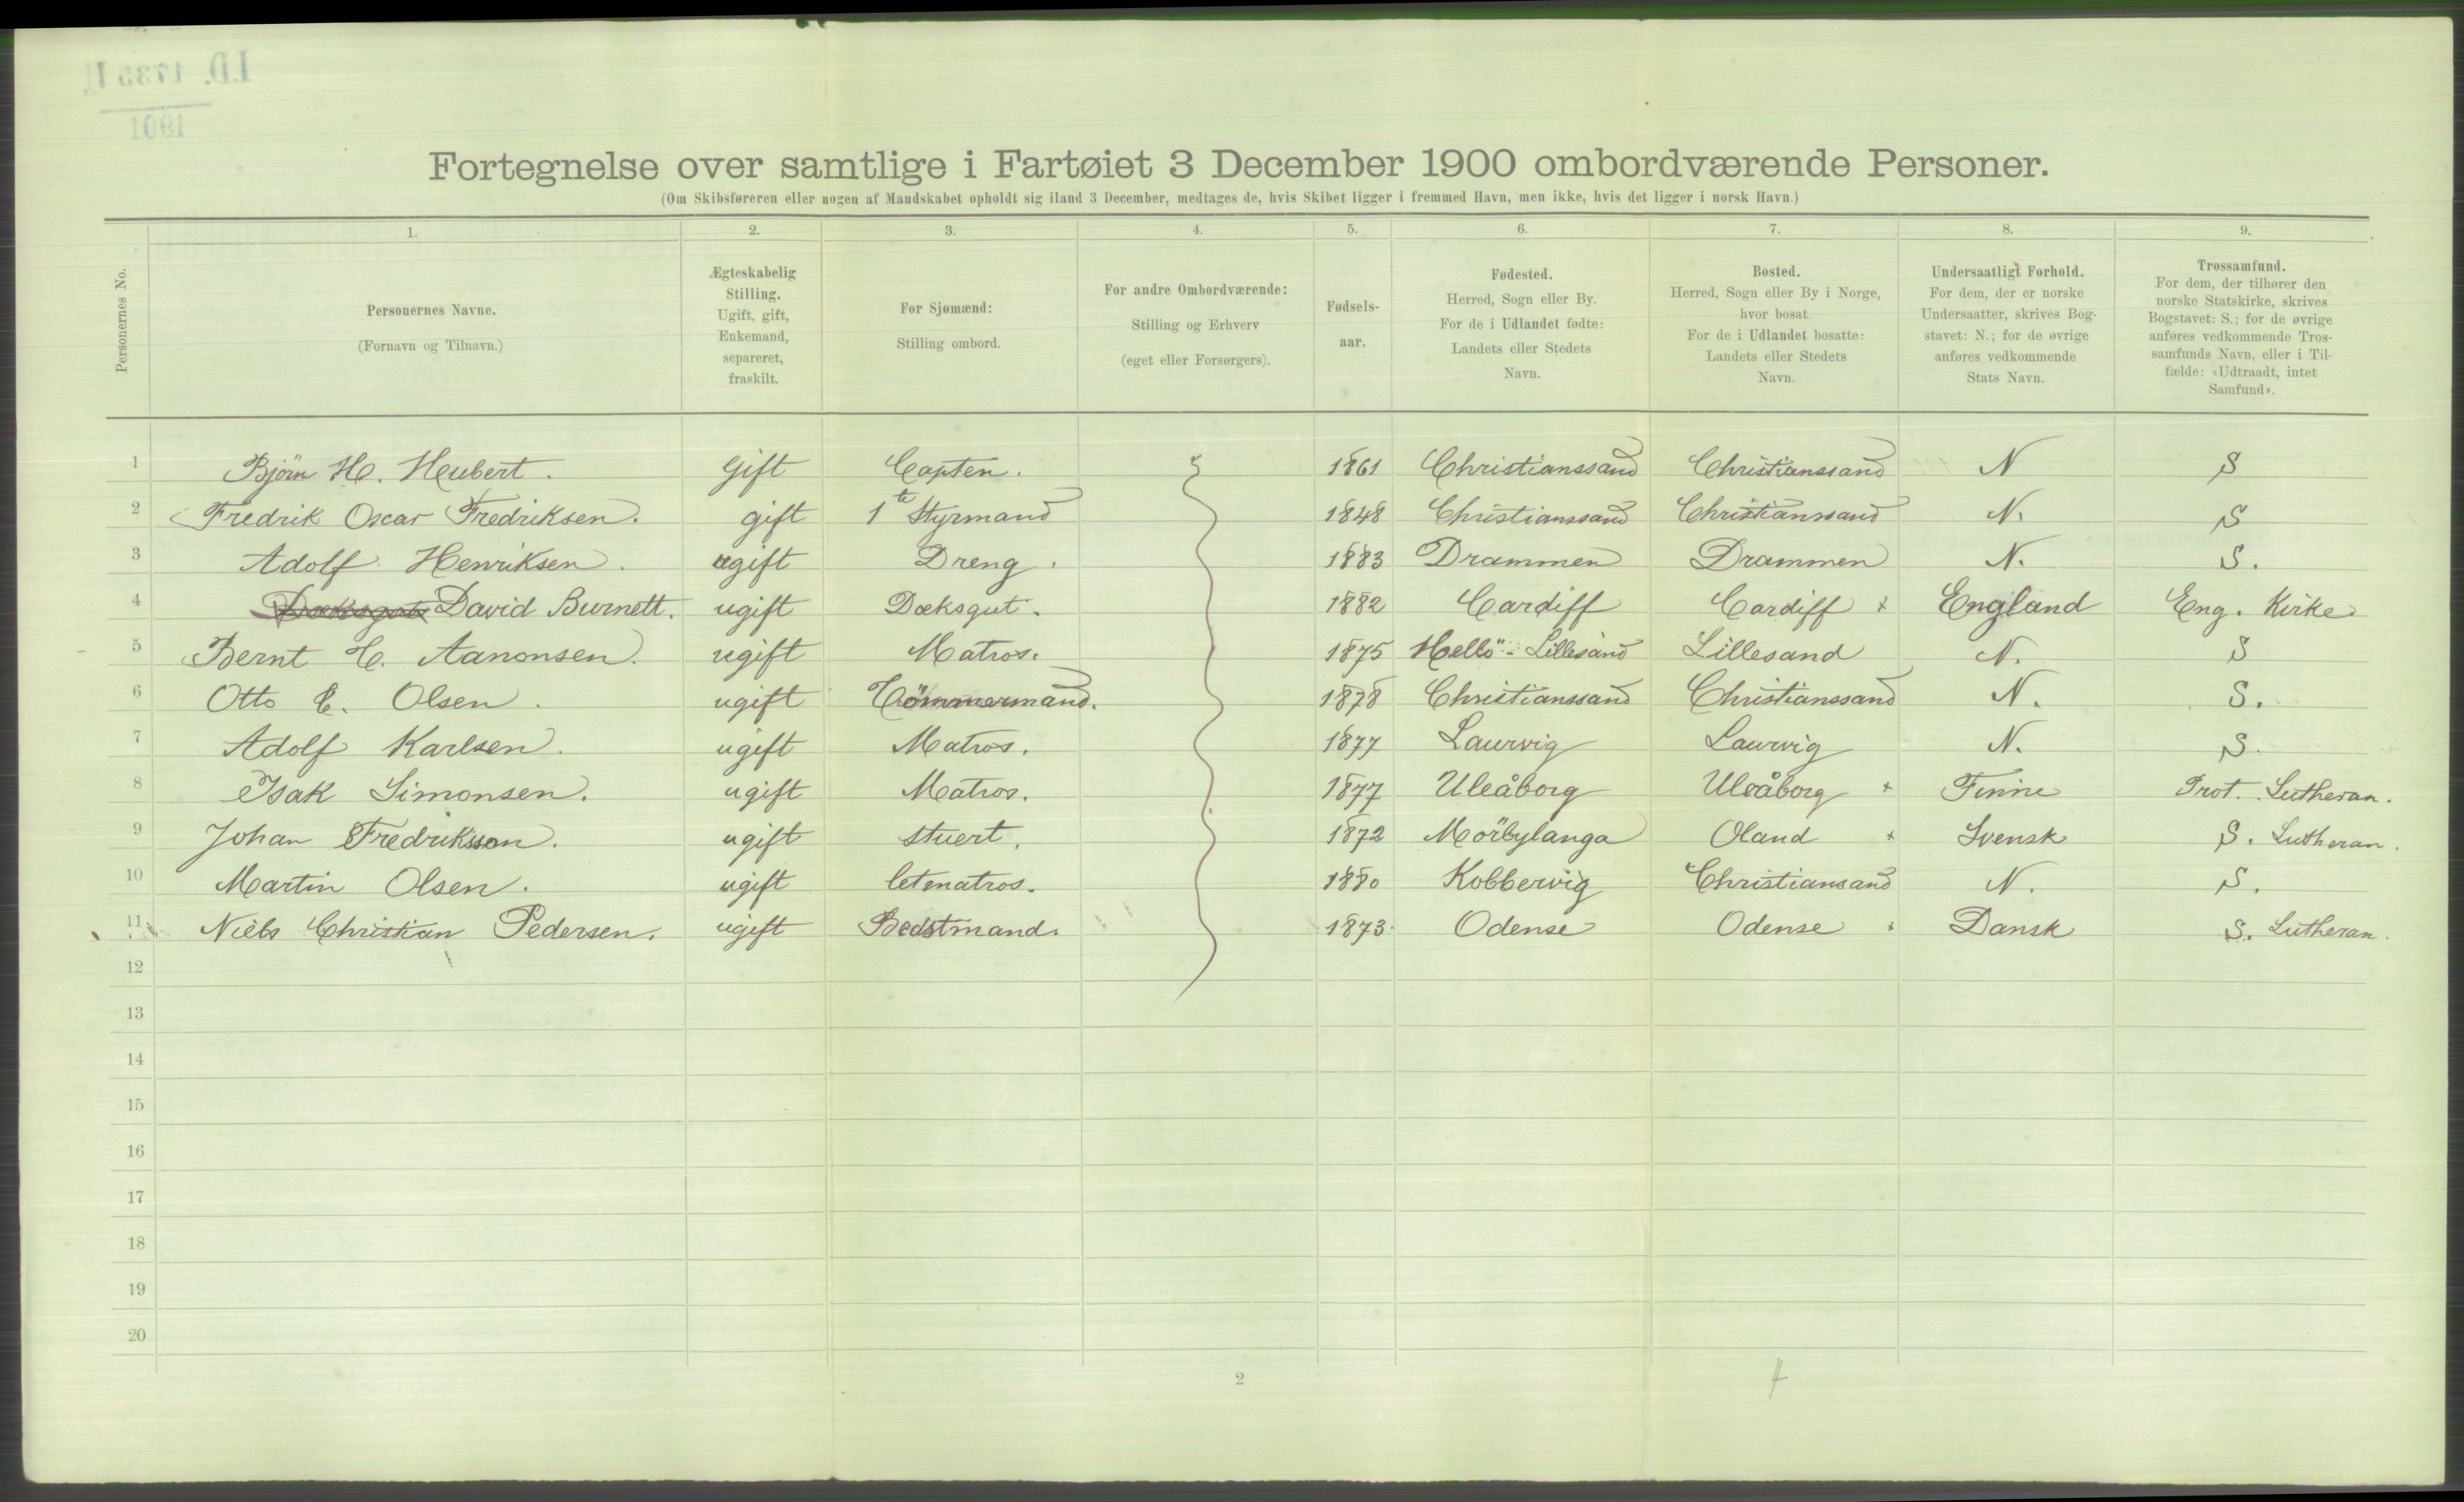 I.D. 1735 U.
1901
Fortegnelse over samtlige i Fartøiet 3 December 1900 ombordværende Personer.
(Om Skibsføreren eller nogen af Mandskabet opholdt sig iland 3 December, medtages de, hvis Skibet ligger i fremmed Havn, men ikke, hvis det ligger i norsk Havn.)
1. 2. 3. 4. 5. 6. 7. 8. 9.
Personernes No.
Personernes Navne.
(Fornavn og Tilnavn.)
Ægteskabelig
Stilling.
Ugift, gift,
Enkemand,
separeret,
fraskilt.
For Sjømænd:
Stilling ombord.
For andre Ombordværende:
Stilling og Erhverv
(eget eller Forsørgers).
Fødsels-
aar.
Fødested.
Herred, Sogn eller By.
For de i Udlandet fødte:
Landets eller Stedets
Navn.
Bosted.
Herred, Sogn eller By i Norge,
hvor bosat
For de i Udlandet bosatte:
Landets eller Stedets
Navn.
Undersaatligt Forhold.
For dem, der er norske
Undersaatter, skrives Bog-
stavet: N.; for de øvrige
anføres vedkommende
Stats Navn.
Trossamfund.
For dem, der tilhører den
norske Statskirke, skrives
Bogstavet: S.; for de øvrige
anføres vedkommende Tros-
samfunds Navn, eller i Til-
fælde: «Udtraadt, intet
Samfund».
1 Björn H. Heubert. Gift Capten. 1861 Christianssand Christianssand N S
2 Fredrik Oscar Fredriksen. gift 1te Styrmand 1848 Christianssand Christianssand N. S
3 Adolf Henriksen. ugift Dreng. 1883 Drammen Drammen N. S.
4 David Burnett. ugift Dæksgut. 1882 Cardiff Cardiff + England Eng. Kirke
5 Bernt C. Aanonsen. ugift Matros. 1875 Hellö - Lillesand Lillesand N. S
6 Otto E. Olsen. ugift Tömmermand. 1878 Christianssand Christianssand N. S.
7 Adolf Karlsen. ugift Matros. 1877 Laurvig Laurvig N. S.
8 Isak Simonsen. ugift Matros. 1877 Uleåborg Uleåborg + Finne Prot. Lutheran.
9 Johan Fredriksson. ugift stuert. 1872 Mörbylanga Oland + Svensk S. Lutheran.
10 Martin Olsen. ugift letmatros. 1880 Kobbervig Christiansand N. S.
11 Niels Christian Pedersen. ugift Bedstmand. 1873. Odense Odense + Dansk S. Lutheran.
12
13
14
15
16
17
18
19
20
2
4